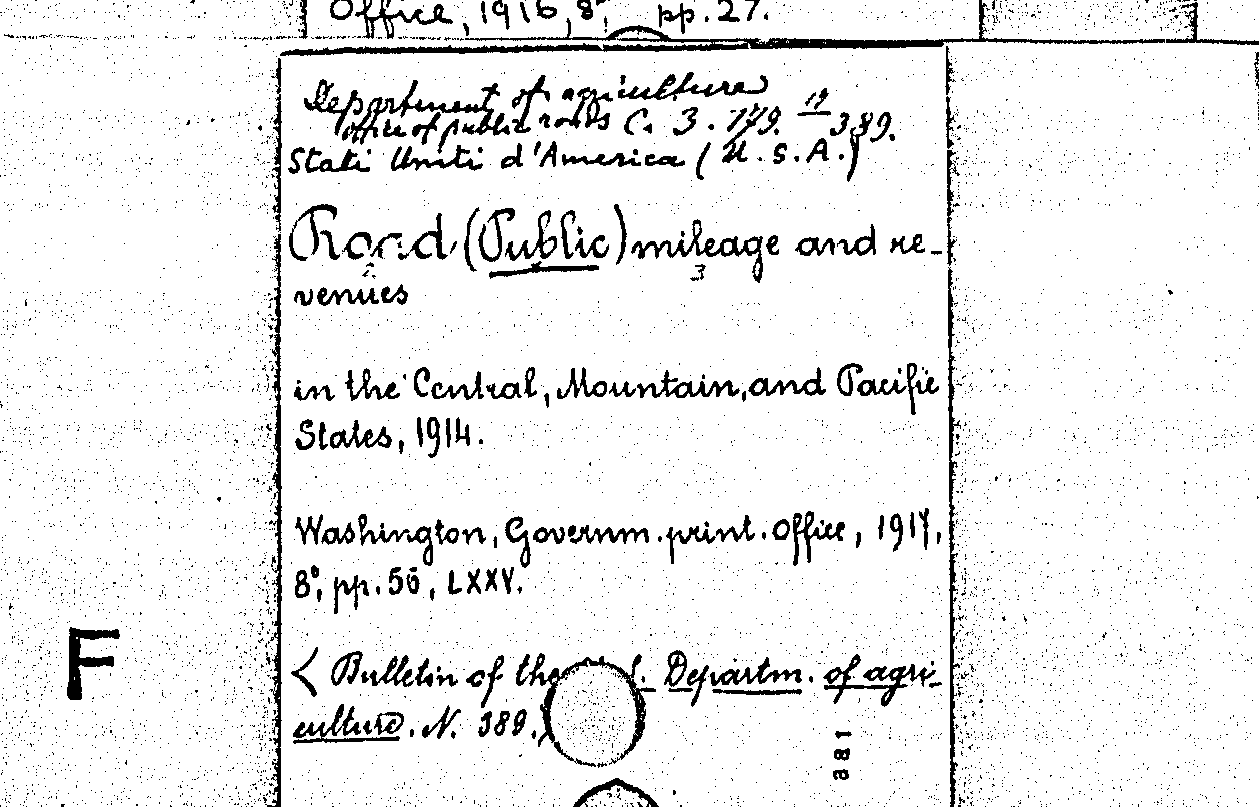 Office, 1916, 8°, pp. 27.
Department of agriculture
office of public roads C. 3. 779. 19 389.
Stati Uniti d'America (U.S.A.)
Road (Public) mileage and re-
2 3
venues
in the Central, Mountain, and Pacific
States, 1914.
Washington, Governm. print. Office, 1917,
8°, pp. 56, LXXV.
F
< Bulletin of the Departm. of agri-
culture. N. 389.)
381